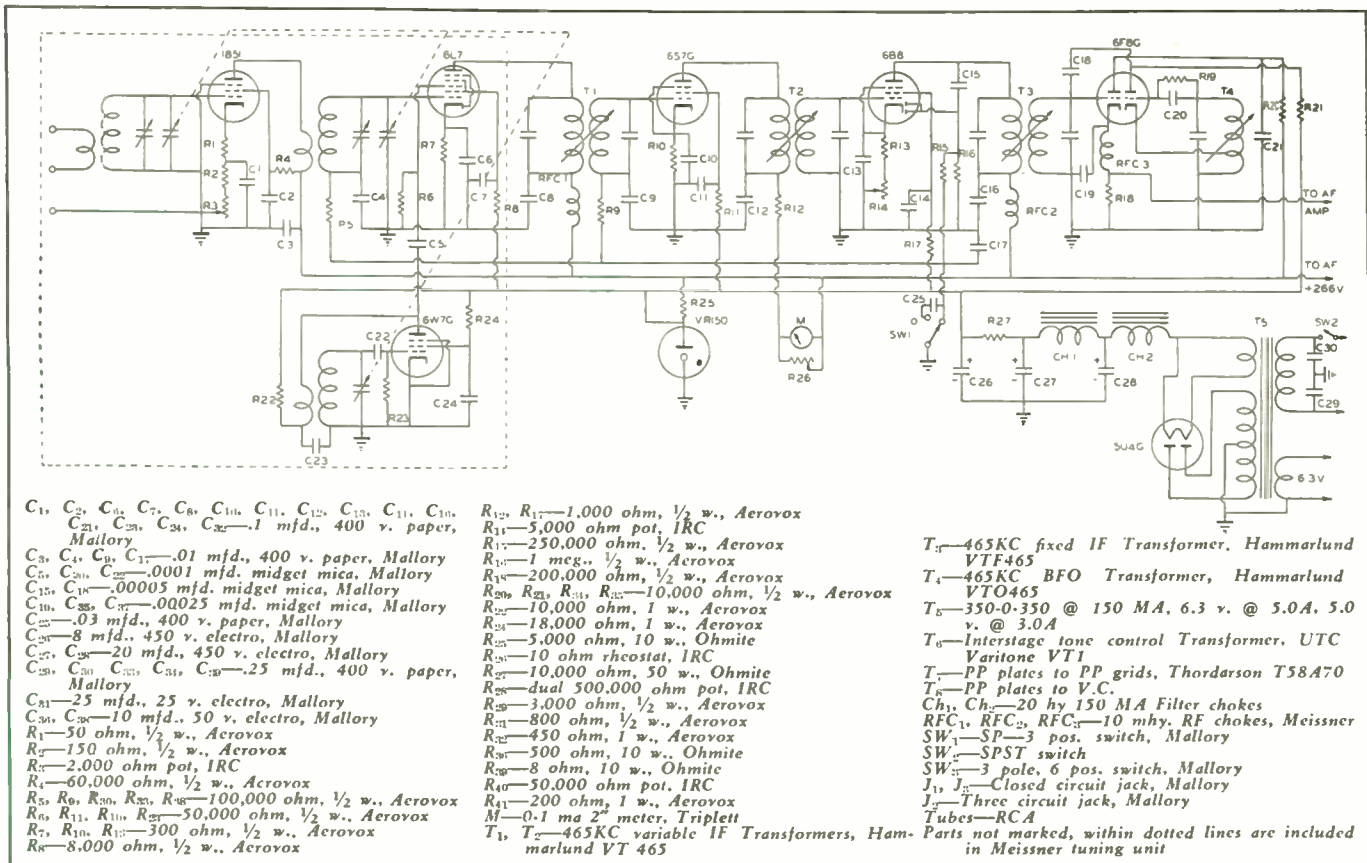 1851
6L7
6S7G
6B8
6F8G
C18
C15
R19
R1
R7
C6
T1
R10
C10
T2
R13
R15
R16
T3
C20
T4
R20
R21
R2
C1
R4
C2
R3
C3
R5
C4
R6
C7
R8
C8
RFC 1
C9
R9
C11
R11
C12
R12
C13
R14
C14
R17
C16
RFC2
C17
C19
RFC 3
R18
C21
TO AF
AMP
TO AF
+266V
C5
R25
VR150
M
R26
C25
SW1
R27
CH 1
CH 2
T5
SW2
C30
C26
C27
C28
C29
5U4G
6.3V
6W7G
C22
R24
R22
R23
C24
C23
C1, C2, C6, C7, C8, C10, C11, C12, C13,
C21, C23, C24, .1 mfd., 400 v. paper,
Mallory
C3, C4, C9, .01 mfd., 400 v. paper, Mallory
C5, C20, C22—.0001 mfd. midget mica, Mallory
C15, C18—.00005 mfd. midget mica, Mallory
.00025 mfd. midget mica, Mallory
C25—.03 mfd., 400 v. paper, Mallory
C26—8 mfd., 450 v. electro, Mallory
C27, C28—20 mfd., 450 v. electro, Mallory
C29, C30 .25 mfd., 400 v. paper,
Mallory
C31—25 mfd., 25 v. electro, Mallory
10 mfd., 50 v. electro, Mallory
R1—50 ohm, 1/2 w., Aerovox
R2—150 ohm, 1/2 w., Aerovox
R3—2,000 ohm pot, IRC
R4—60,000 ohm, 1/2 w., Aerovox
R5, R9, R30, 100,000 ohm, 1/2 w., Aerovox
R6, R11, 50,000 ohm, 1/2 w., Aerovox
R7, R10, R13—300 ohm, 1/2 w., Aerovox
R8—8,000 ohm, 1/2 w., Aerovox
R12, 1,000 ohm, 1/2 w., Aerovox
R14—5,000 ohm pot, IRC
250,000 ohm, 1/2 w., Aerovox
1 meg., 1/2 w., Aerovox
200,000 ohm, 1/2 w., Aerovox
R20, R21, 10,000 ohm, 1/2 w., Aerovox
10,000 ohm, 1 w., Aerovox
R24—18,000 ohm, 1 w., Aerovox
R25—5,000 ohm, 10 w., Ohmite
R26—10 ohm rheostat, IRC
R27—10,000 ohm, 50 w., Ohmite
R28—dual 500,000 ohm pot, IRC
R29—3,000 ohm, 1/2 w., Aerovox
800 ohm, 1/2 w., Aerovox
R32—450 ohm, 1 w., Aerovox
500 ohm, 10 w., Ohmite
8 ohm, 10 w., Ohmite
R40—50,000 ohm pot. IRC
R41—200 ohm, 1 w., Aerovox
M—0-1 ma 2" meter, Triplett
T1, T2—465KC variable IF Transformers, Ham-
marlund VT 465
T3—465KC fixed IF Transformer, Hammarlund
VTF465
T4—465KC BFO Transformer, Hammarlund
VTO465
T5—350-0-350 @ 150 MA, 6.3 v. @ 5.0A, 5.0
v. @ 3.0A
T6—Interstage tone control Transformer, UTC
Varitone VT1
T7—PP plates to PP grids, Thordarson T58A70
T8—PP plates to V.C.
Ch1, Ch2—20 hy 150 MA Filter chokes
RFC1, RFC2, RFC3—10 mhy. RF chokes, Meissner
SW1—SP—3 pos. switch, Mallory
SW2—SPST switch
SW3—3 pole, 6 pos. switch, Mallory
J1, Closed circuit jack, Mallory
Three circuit jack, Mallory
Tubes—RCA
Parts not marked, within dotted lines are included
in Meissner tuning unit